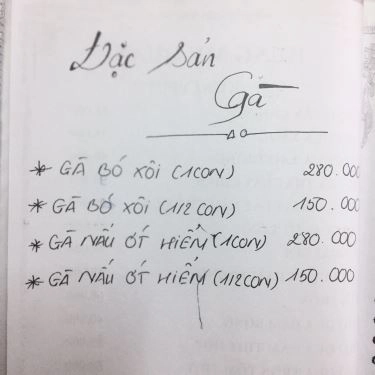 Đặc sản
Gà
* GÀ BÓ XÔI (1CON) 280.000
* GÀ BÓ XÔI (1/2 CON) 150.000
* GÀ NẤU ỚT HIỂM (1CON) 280.000
* GÀ NẤU ỚT HIỂM (1/2CON) 150.000